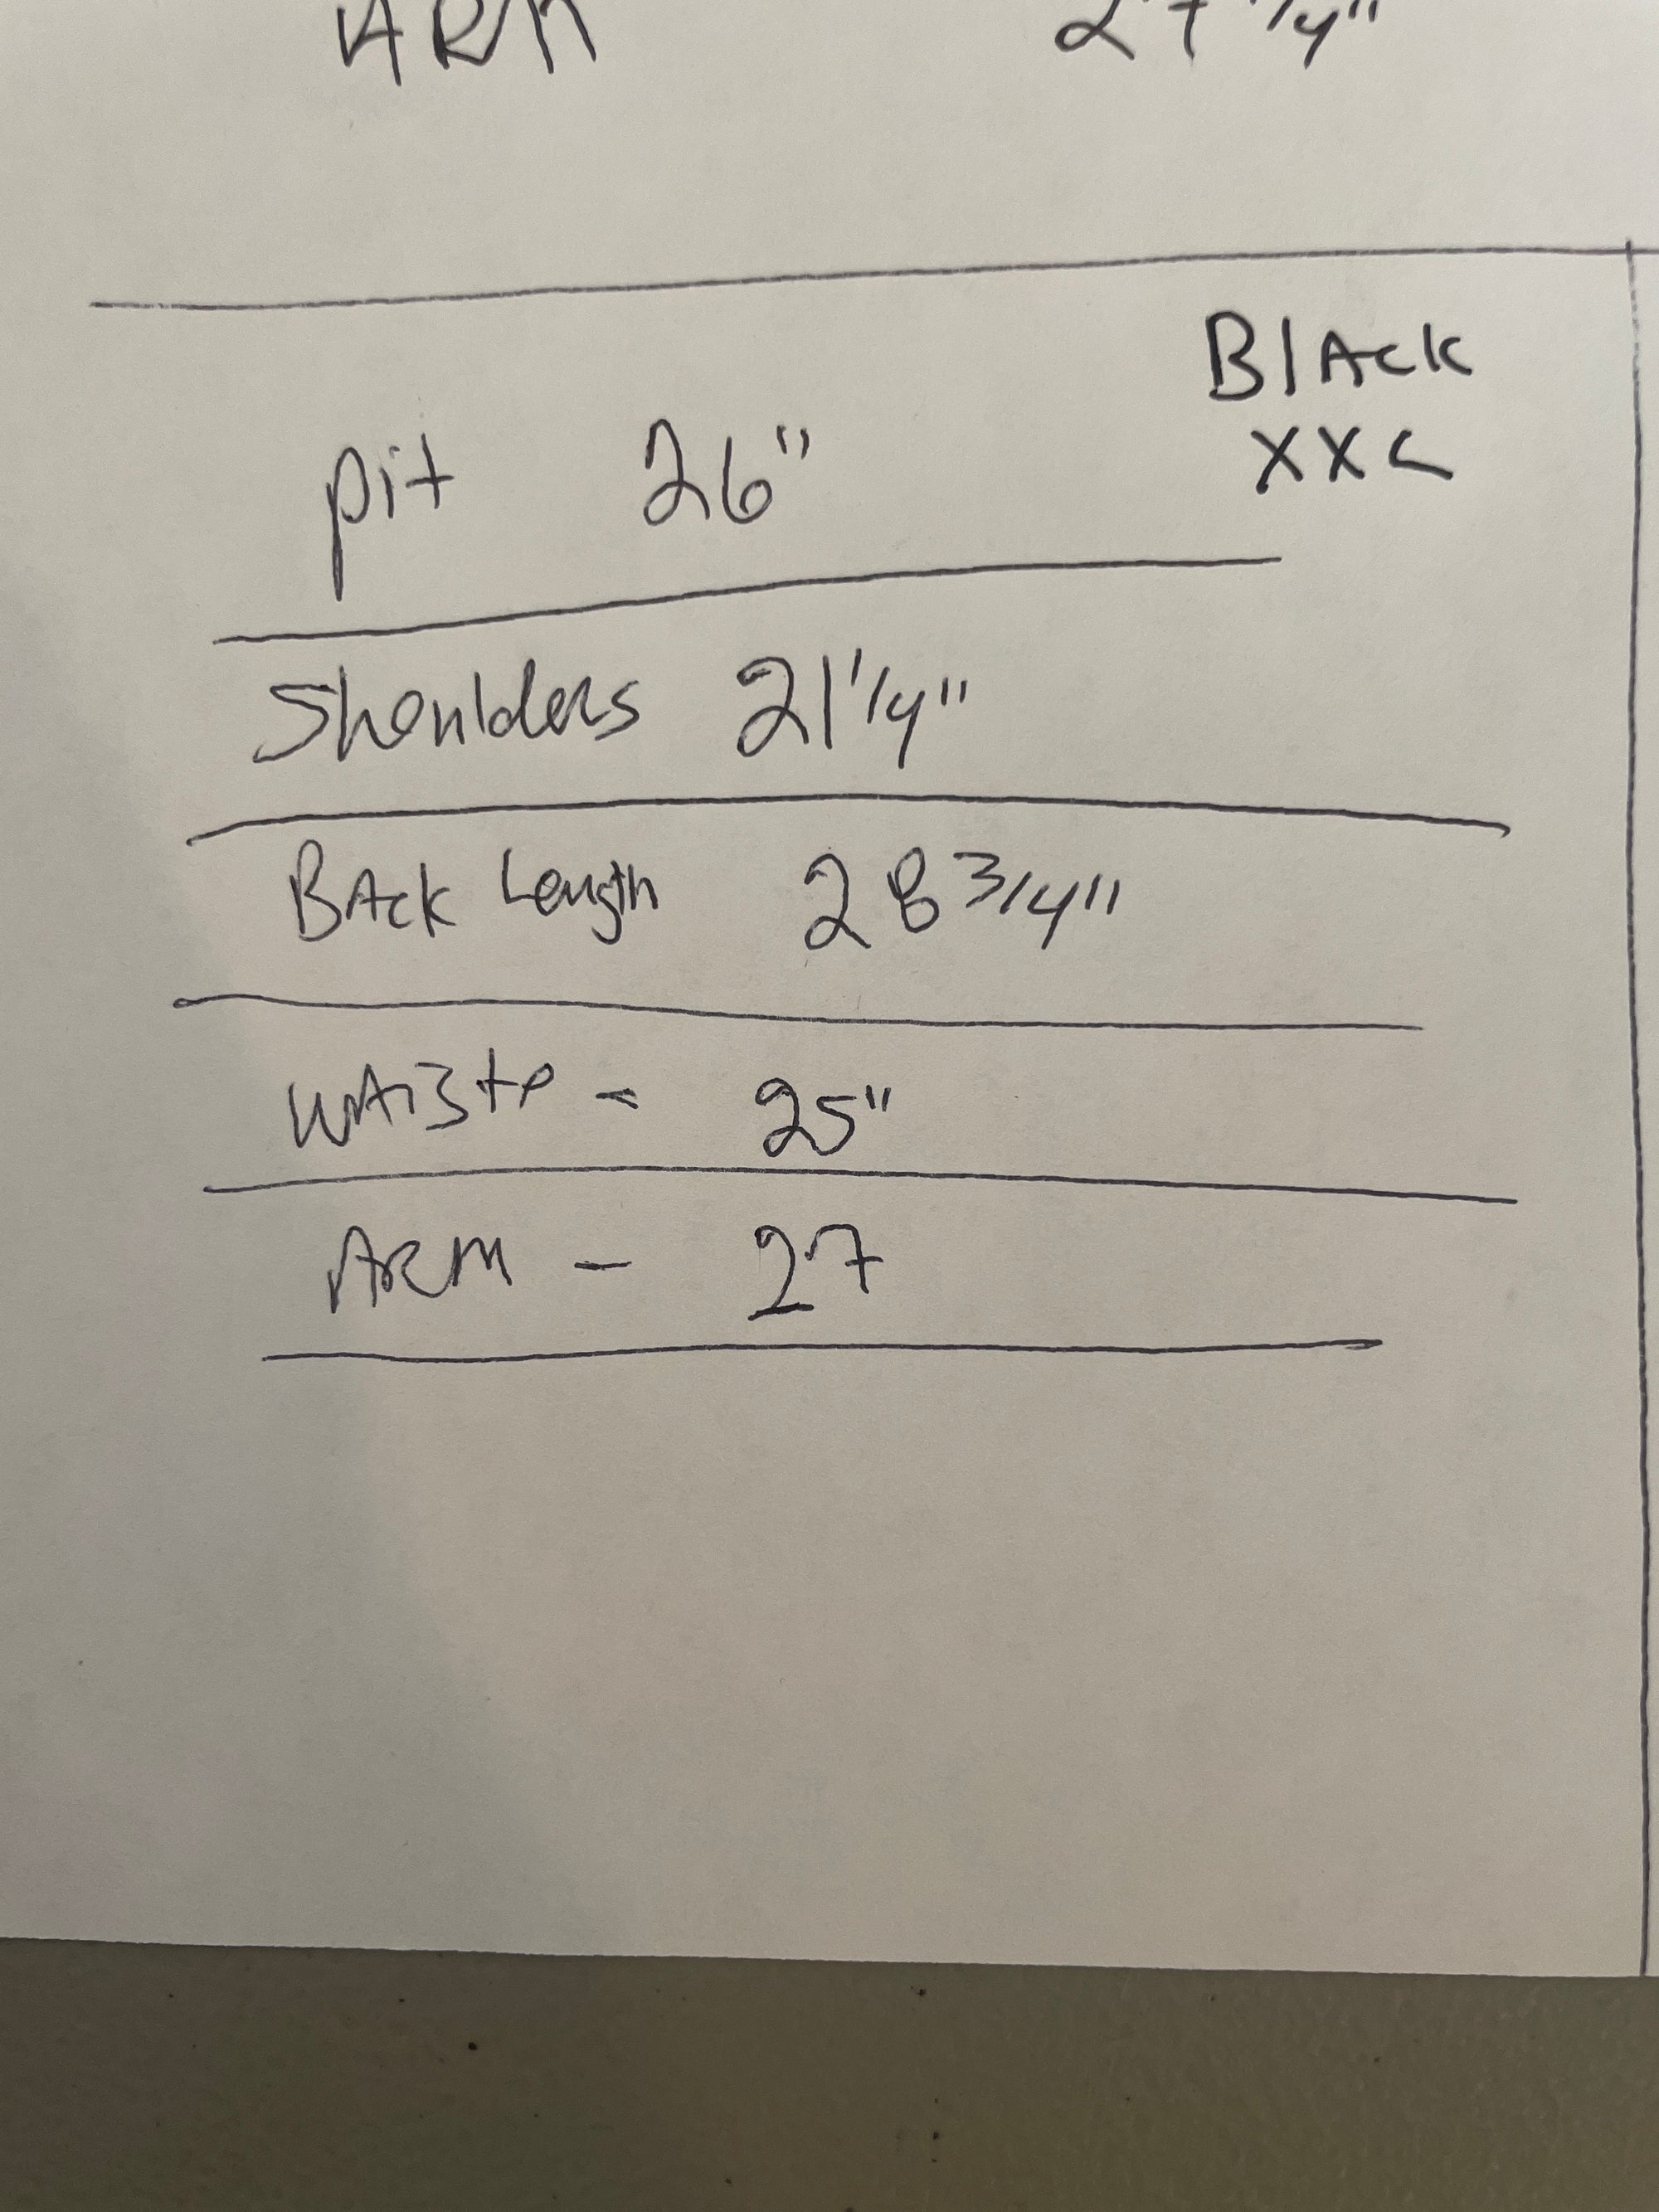 ARM 27 1/4"
Black
XXL
pit 26"
Shoulders 21 1/4"
Back Length 28 3/4"
Waiste - 25"
ARM - 27